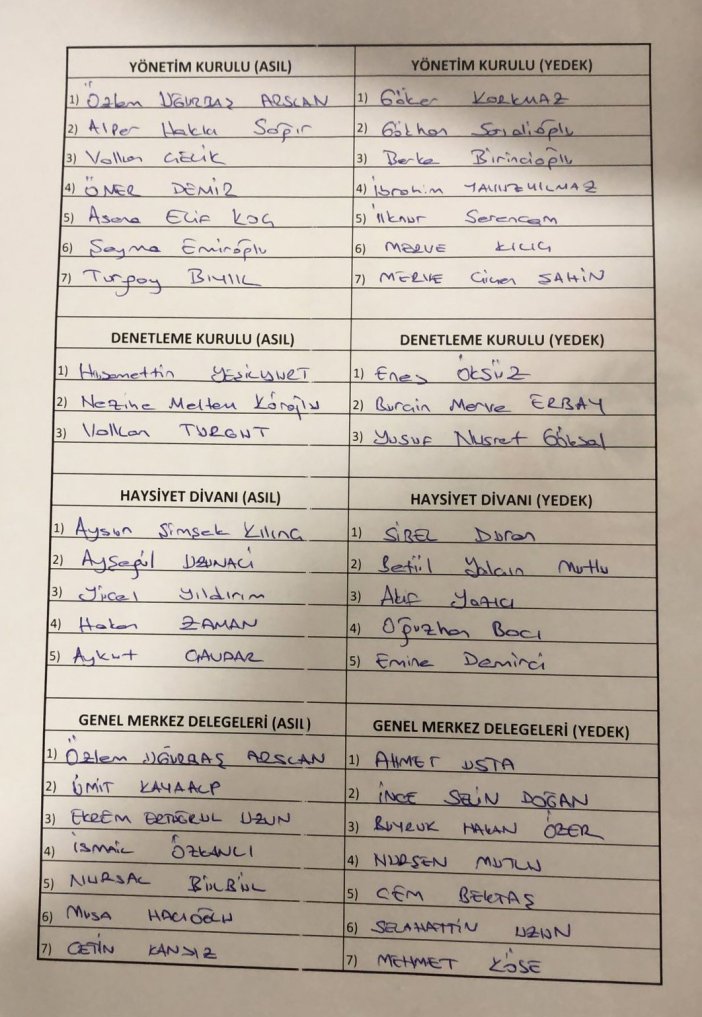 YÖNETİM KURULU (ASIL) YÖNETİM KURULU (YEDEK)
1) Özlem UĞURBAŞ ARSLAN 1) Göker KORKMAZ
2) Alper Hakkı Sağır 2) Gökhan Sarıalioğlu
3) Volkan ÇELİK 3) Berke Birincioğlu
4) ÖNER DEMİR 4) İbrahim YAVUZYILMAZ
5) Asena Elif KOÇ 5) İlknur Serencam
6) Şeyma Emiroğlu 6) MERVE KILIÇ
7) Turgay BIYIK 7) MERVE ŞAHİN
DENETLEME KURULU (ASIL) DENETLEME KURULU (YEDEK)
1) Hüsamettin YEŞİLYURT 1) Enes ÖKSÜZ
2) Nezihe Meltem Köroğlu 2) Burçin Merve ERBAY
3) Volkan TURGUT 3) Yusuf Nusret Göksal
HAYSİYET DİVANI (ASIL) HAYSİYET DİVANI (YEDEK)
1) Aysun Şimşek Kılınç 1) SİBEL Duran
2) Ayşegül UZUNAÇİ 2) Betül Yalçın Mutlu
3) Yücel Yıldırım 3) Akif Yazıcı
4) Hakan ZAMAN 4) Oğuzhan Bacı
5) Aykut ÇAVDAR 5) Emine Demirci
GENEL MERKEZ DELEGELERİ (ASIL) GENEL MERKEZ DELEGELERİ (YEDEK)
1) Özlem UĞURBAŞ ARSLAN 1) AHMET USTA
2) ÜMİT KAYAALP 2) İNCE SELİN DOĞAN
3) EKREM ERTUĞRUL UZUN 3) BUYRUK HAKAN ÖZER
4) İSMAİL ÖZKANCI 4) NURŞEN MUTLU
5) NURSAL BÜLBÜL 5) CEM BEKTAŞ
6) MUSA HACIOĞLU 6) SELAHATTİN UZUN
7) ÇETİN KANSIZ 7) MEHMET KÖSE